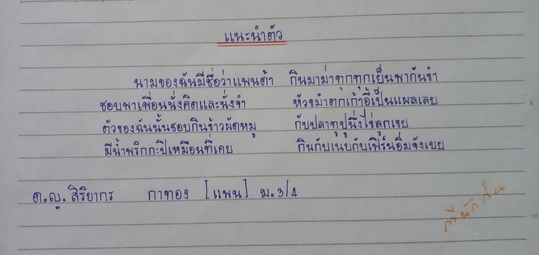 แนะนำตัว
นามของฉันมีชื่อว่าแพนด้า กินมาม่าทุกทุกเย็นพากันขำ
ชอบพาเพื่อนนั่งคิดและนั่งจำ หัวขม้ำตกเก้าอี้เป็นแผลเลย
ตัวของฉันนั้นชอบกินข้าวผัดหมู กับปลาทูปูนึ่งไข่ลูกเขย
มีน้ำพริกกะปิเหมือนที่เคย กินกับเนยกับเฟิร์นอิ่มจังเยย
ด.ญ. สิริยากร กาทอง [แพน] ม.3/4